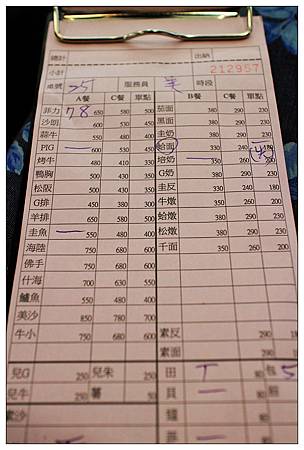 總計 出納
小計 212957
桌號 25 服務員 時段
A餐 C餐 單點 B餐 C餐 單點
菲力 78 650 580 500 茄面 380 290 230
沙朗 600 530 450 黑面 380 290 230
蒜牛 550 480 400 圭奶 380 290 230
PIG 一 600 530 450 蛤面 330 240 180
烤牛 480 410 330 培奶 一 350 260 200
鴨胸 500 430 350 G奶 380 290 230
松阪 500 430 350 圭反 330 240 180
G排 450 380 300 牛燉 350 260 200
羊排 650 580 500 蛤燉 380 290 230
圭魚 一 550 480 400 松燉 380 290 230
海陸 750 680 600 千面 350 260 200
佛手 750 680 600
什海 700 630 550
鱸魚 550 480 400
美沙 850 780 700
牛小 750 680 600 素反 290
素面 290
兒G 250 兒朱 250 田 80 包
兒牛 250 薯 50 貝 一 80